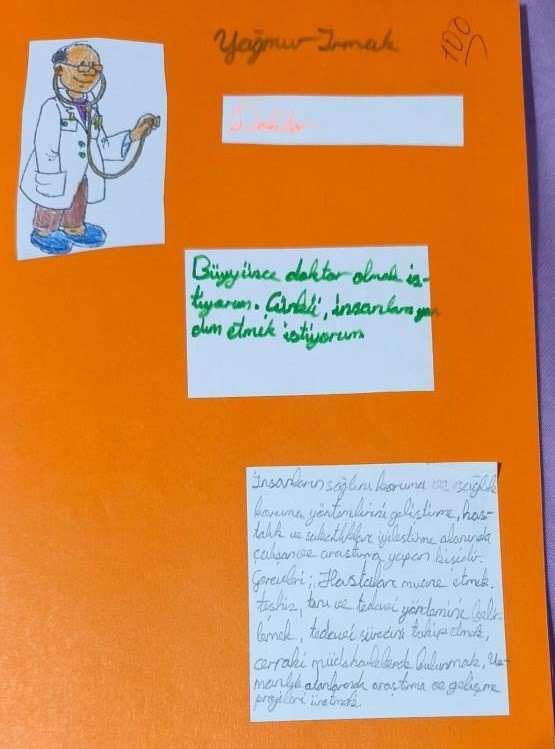 Yağmur Irmak
100
Doktor
Büyyünce doktor olmak is-
tiyorum. Çünkü, insanlara yar
dım etmek istiyorum
İnsanların sağlını koruma ve sağlık
koruma yöntemlerini geliştirme, has-
talık ve sakatlıkları iyileştirme alanında
çalışan ve araştırma yapan kişidir.
Görevleri; Hastaları muane etmek.
teşhiz, tanı ve tedavi yöntemini belir-
lemek, tedavi sürecini takip etmek,
cerrahi müdahalelerde bulunmak. Uz-
manlık alanlarında araştırma ve gelişme
projeleri üretmek.